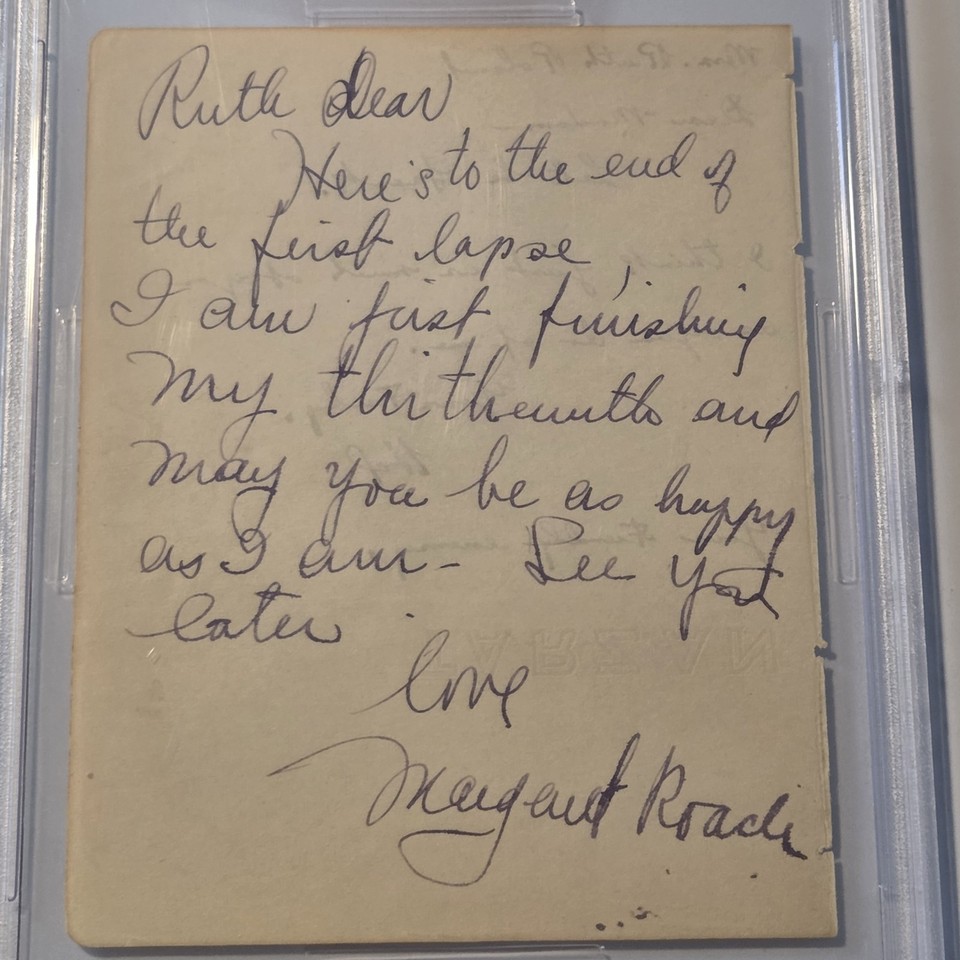 Ruth Dear
Here's to the end of
the first lapse,
I am just finishing
my thirtheenth and
may you be as happy
as I am - See you
later.
love
Margaret Roach